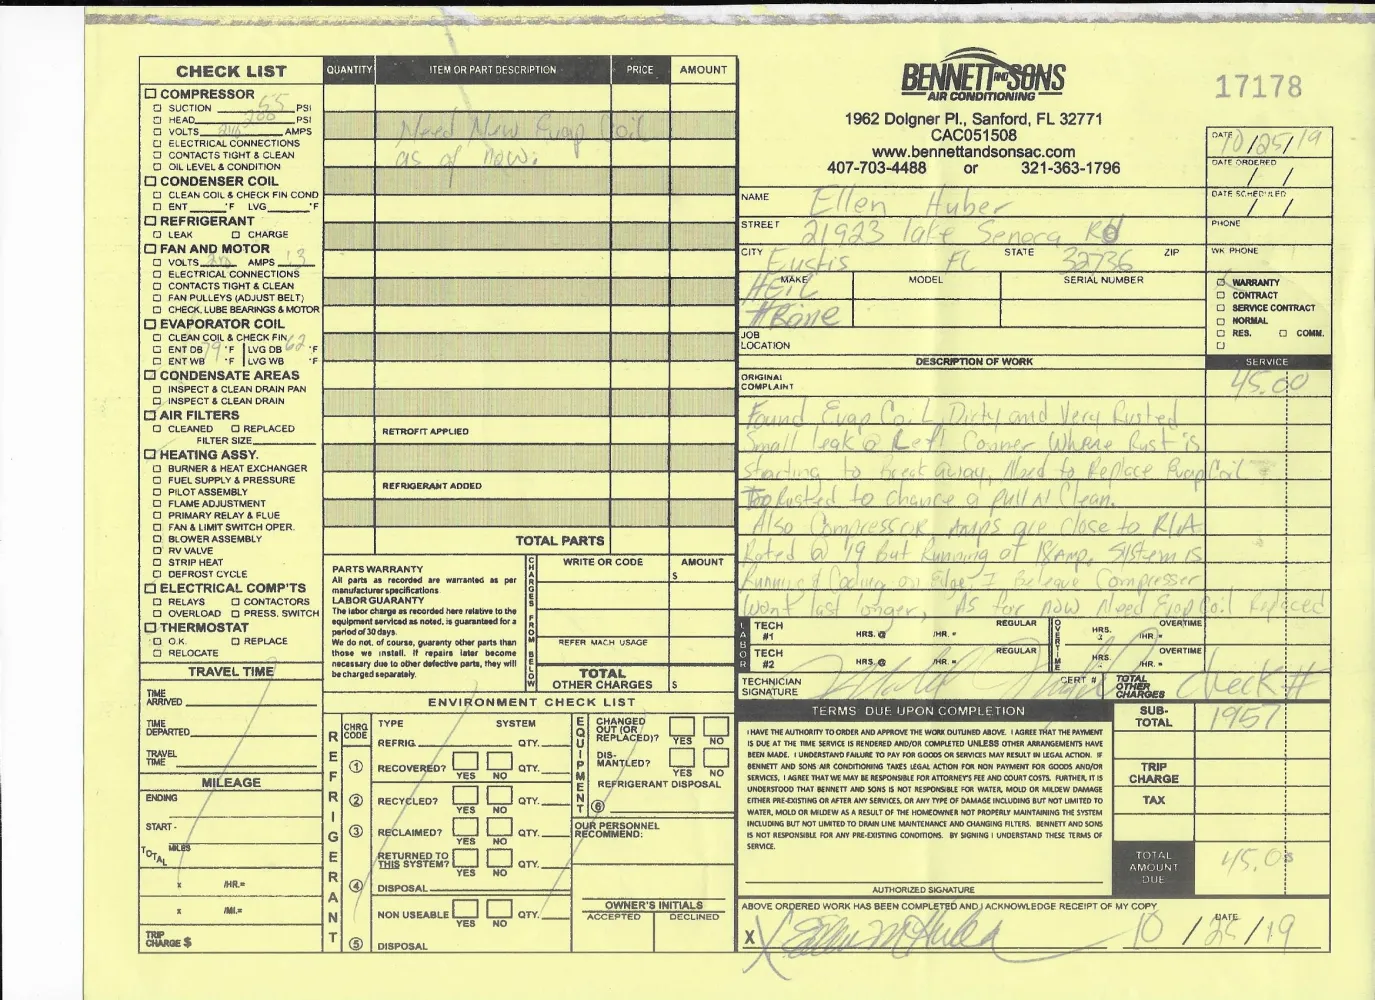 CHECK LIST
COMPRESSOR
SUCTION 55 PSI
HEAD 200 PSI
VOLTS AMPS
ELECTRICAL CONNECTIONS
CONTACTS TIGHT & CLEAN
OIL LEVEL & CONDITION
CONDENSER COIL
CLEAN COIL & CHECK FIN COND
ENT °F LVG °F
REFRIGERANT
LEAK CHARGE
FAN AND MOTOR
VOLTS AMPS 13
ELECTRICAL CONNECTIONS
CONTACTS TIGHT & CLEAN
FAN PULLEYS (ADJUST BELT)
CHECK, LUBE BEARINGS & MOTOR
EVAPORATOR COIL
CLEAN COIL & CHECK FIN
ENT DB 79 °F LVG DB 62 °F
ENT WB °F LVG WB °F
CONDENSATE AREAS
INSPECT & CLEAN DRAIN PAN
INSPECT & CLEAN DRAIN
AIR FILTERS
CLEANED REPLACED
FILTER SIZE
HEATING ASSY.
BURNER & HEAT EXCHANGER
FUEL SUPPLY & PRESSURE
PILOT ASSEMBLY
FLAME ADJUSTMENT
PRIMARY RELAY & FLUE
FAN & LIMIT SWITCH OPER.
BLOWER ASSEMBLY
RV VALVE
STRIP HEAT
DEFROST CYCLE
ELECTRICAL COMP'TS
RELAYS CONTACTORS
OVERLOAD PRESS. SWITCH
THERMOSTAT
O.K. REPLACE
RELOCATE
TRAVEL TIME
TIME ARRIVED
TIME DEPARTED
TRAVEL TIME
MILEAGE
ENDING
START -
TOTAL MILES
x /HR.=
x /MI.=
TRIP CHARGE $
QUANTITY ITEM OR PART DESCRIPTION PRICE AMOUNT
Need New Evap Coil
as of now.
RETROFIT APPLIED
REFRIGERANT ADDED
TOTAL PARTS
PARTS WARRANTY
All parts as recorded are warranted as per
manufacturer specifications.
LABOR GUARANTY
The labor charge as recorded here relative to the
equipment serviced as noted, is guaranteed for a
period of 30 days.
We do not, of course, guaranty other parts than
those we install. If repairs later become
necessary due to other defective parts, they will
be charged separately.
CHARGES FROM BELOW
WRITE OR CODE AMOUNT
$
REFER MACH USAGE
TOTAL
OTHER CHARGES $
ENVIRONMENT CHECK LIST
REFRIGERANT
CHRG CODE TYPE SYSTEM
REFRIG. QTY.
1 RECOVERED? YES NO QTY.
2 RECYCLED? YES NO QTY.
3 RECLAIMED? YES NO QTY.
RETURNED TO
THIS SYSTEM? YES NO QTY.
4 DISPOSAL
NON USEABLE YES NO QTY.
5 DISPOSAL
EQUIPMENT
CHANGED
OUT (OR
REPLACED)? YES NO
DIS-
MANTLED? YES NO
REFRIGERANT DISPOSAL
6
OUR PERSONNEL
RECOMMEND:
OWNER'S INITIALS
ACCEPTED DECLINED
BENNETT AND SONS
AIR CONDITIONING
17178
1962 Dolgner Pl., Sanford, FL 32771
CAC051508
www.bennettandsonsac.com
407-703-4488 or 321-363-1796
DATE 10/25/19
DATE ORDERED / /
DATE SCHEDULED / /
NAME Ellen Huber
STREET 21923 lake Seneca Rd
PHONE
CITY Eustis FL STATE 32736 ZIP
WK PHONE
MAKE MODEL SERIAL NUMBER
HEIL
WARRANTY
CONTRACT
SERVICE CONTRACT
NORMAL
RES. COMM.
JOB
LOCATION
DESCRIPTION OF WORK SERVICE
ORIGINAL
COMPLAINT 45.00
Found Evap Coil Dirty and Very Rusted
Small leak @ Left Conner Where Rust is
starting to break away, Need to Replace Evap Coil
Too Rusted to chance a pull N Clean.
Also Compressor Amps are close to RLA
Rated @ 19 But Running at 18 Amp. System is
Running & Cooling on Edge I Beleave Compresser
Wont last longer, As for now Need Evap Coil Replaced
LABOR
TECH #1 HRS. @ /HR. = REGULAR OVERTIME HRS. @ /HR. = OVERTIME
TECH #2 HRS. @ /HR. = REGULAR HRS. @ /HR. = OVERTIME
TECHNICIAN
SIGNATURE CERT # TOTAL OTHER CHARGES Check #
TERMS DUE UPON COMPLETION SUB-TOTAL 1957
I HAVE THE AUTHORITY TO ORDER AND APPROVE THE WORK OUTLINED ABOVE. I AGREE THAT THE PAYMENT
IS DUE AT THE TIME SERVICE IS RENDERED AND/OR COMPLETED UNLESS OTHER ARRANGEMENTS HAVE
BEEN MADE. I UNDERSTAND FAILURE TO PAY FOR GOODS OR SERVICES MAY RESULT IN LEGAL ACTION. IF
BENNETT AND SONS AIR CONDITIONING TAKES LEGAL ACTION FOR NON PAYMENT FOR GOODS AND/OR
SERVICES, I AGREE THAT WE MAY BE RESPONSIBLE FOR ATTORNEY'S FEE AND COURT COSTS. FURTHER, IT IS
UNDERSTOOD THAT BENNETT AND SONS IS NOT RESPONSIBLE FOR WATER, MOLD OR MILDEW DAMAGE
EITHER PRE-EXISTING OR AFTER ANY SERVICES, OR ANY TYPE OF DAMAGE INCLUDING BUT NOT LIMITED TO
WATER, MOLD OR MILDEW AS A RESULT OF THE HOMEOWNER NOT PROPERLY MAINTAINING THE SYSTEM
INCLUDING BUT NOT LIMITED TO DRAIN LINE MAINTENANCE AND CHANGING FILTERS. BENNETT AND SONS
IS NOT RESPONSIBLE FOR ANY PRE-EXISTING CONDITIONS. BY SIGNING I UNDERSTAND THESE TERMS OF
SERVICE.
TRIP
CHARGE
TAX
TOTAL
AMOUNT
DUE 45.00
AUTHORIZED SIGNATURE
ABOVE ORDERED WORK HAS BEEN COMPLETED AND I ACKNOWLEDGE RECEIPT OF MY COPY.
X DATE 10/25/19